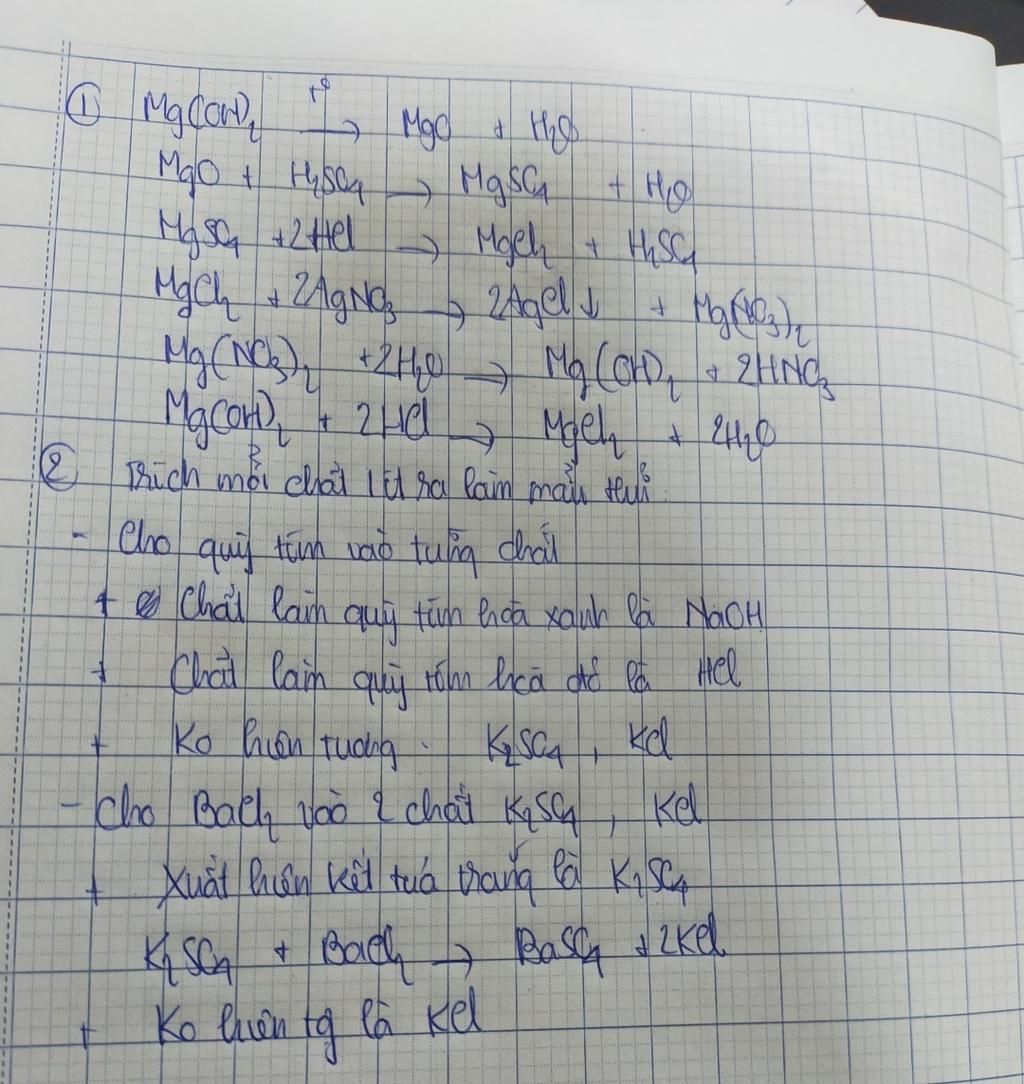 ① Mg(OH)₂ —t°→ MgO + H₂O
MgO + H₂SO₄ → MgSO₄ + H₂O
MgSO₄ + 2HCl → MgCl₂ + H₂SO₄
MgCl₂ + 2AgNO₃ → 2AgCl↓ + Mg(NO₃)₂
Mg(NO₃)₂ + 2H₂O → Mg(OH)₂ + 2HNO₃
Mg(OH)₂ + 2HCl → MgCl₂ + 2H₂O
② Trích mỗi chất 1 ít ra làm mẫu thử
- Cho quỳ tím vào từng chất
+ Chất làm quỳ tím hoá xanh là NaOH
+ Chất làm quỳ tím hoá đỏ là HCl
+ Ko hiện tượng K₂SO₄, KCl
- Cho BaCl₂ vào 2 chất K₂SO₄, KCl
+ Xuất hiện kết tủa trắng là K₂SO₄
K₂SO₄ + BaCl₂ → BaSO₄ + 2KCl
+ Ko hiện tg là KCl